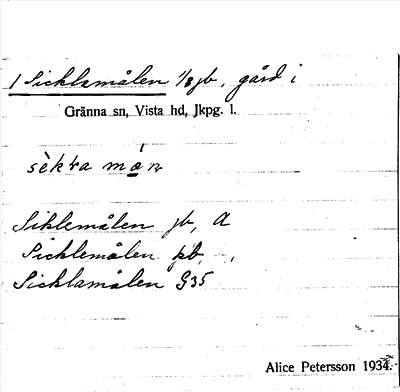 1 Sicklamålen 1/8 jb, gård i
Gränna sn, Vista hd, Jkpg. l.
Siklemålen jb, A
Sicklemålen kb,
Sicklamålen G35
Alice Petersson 1934.